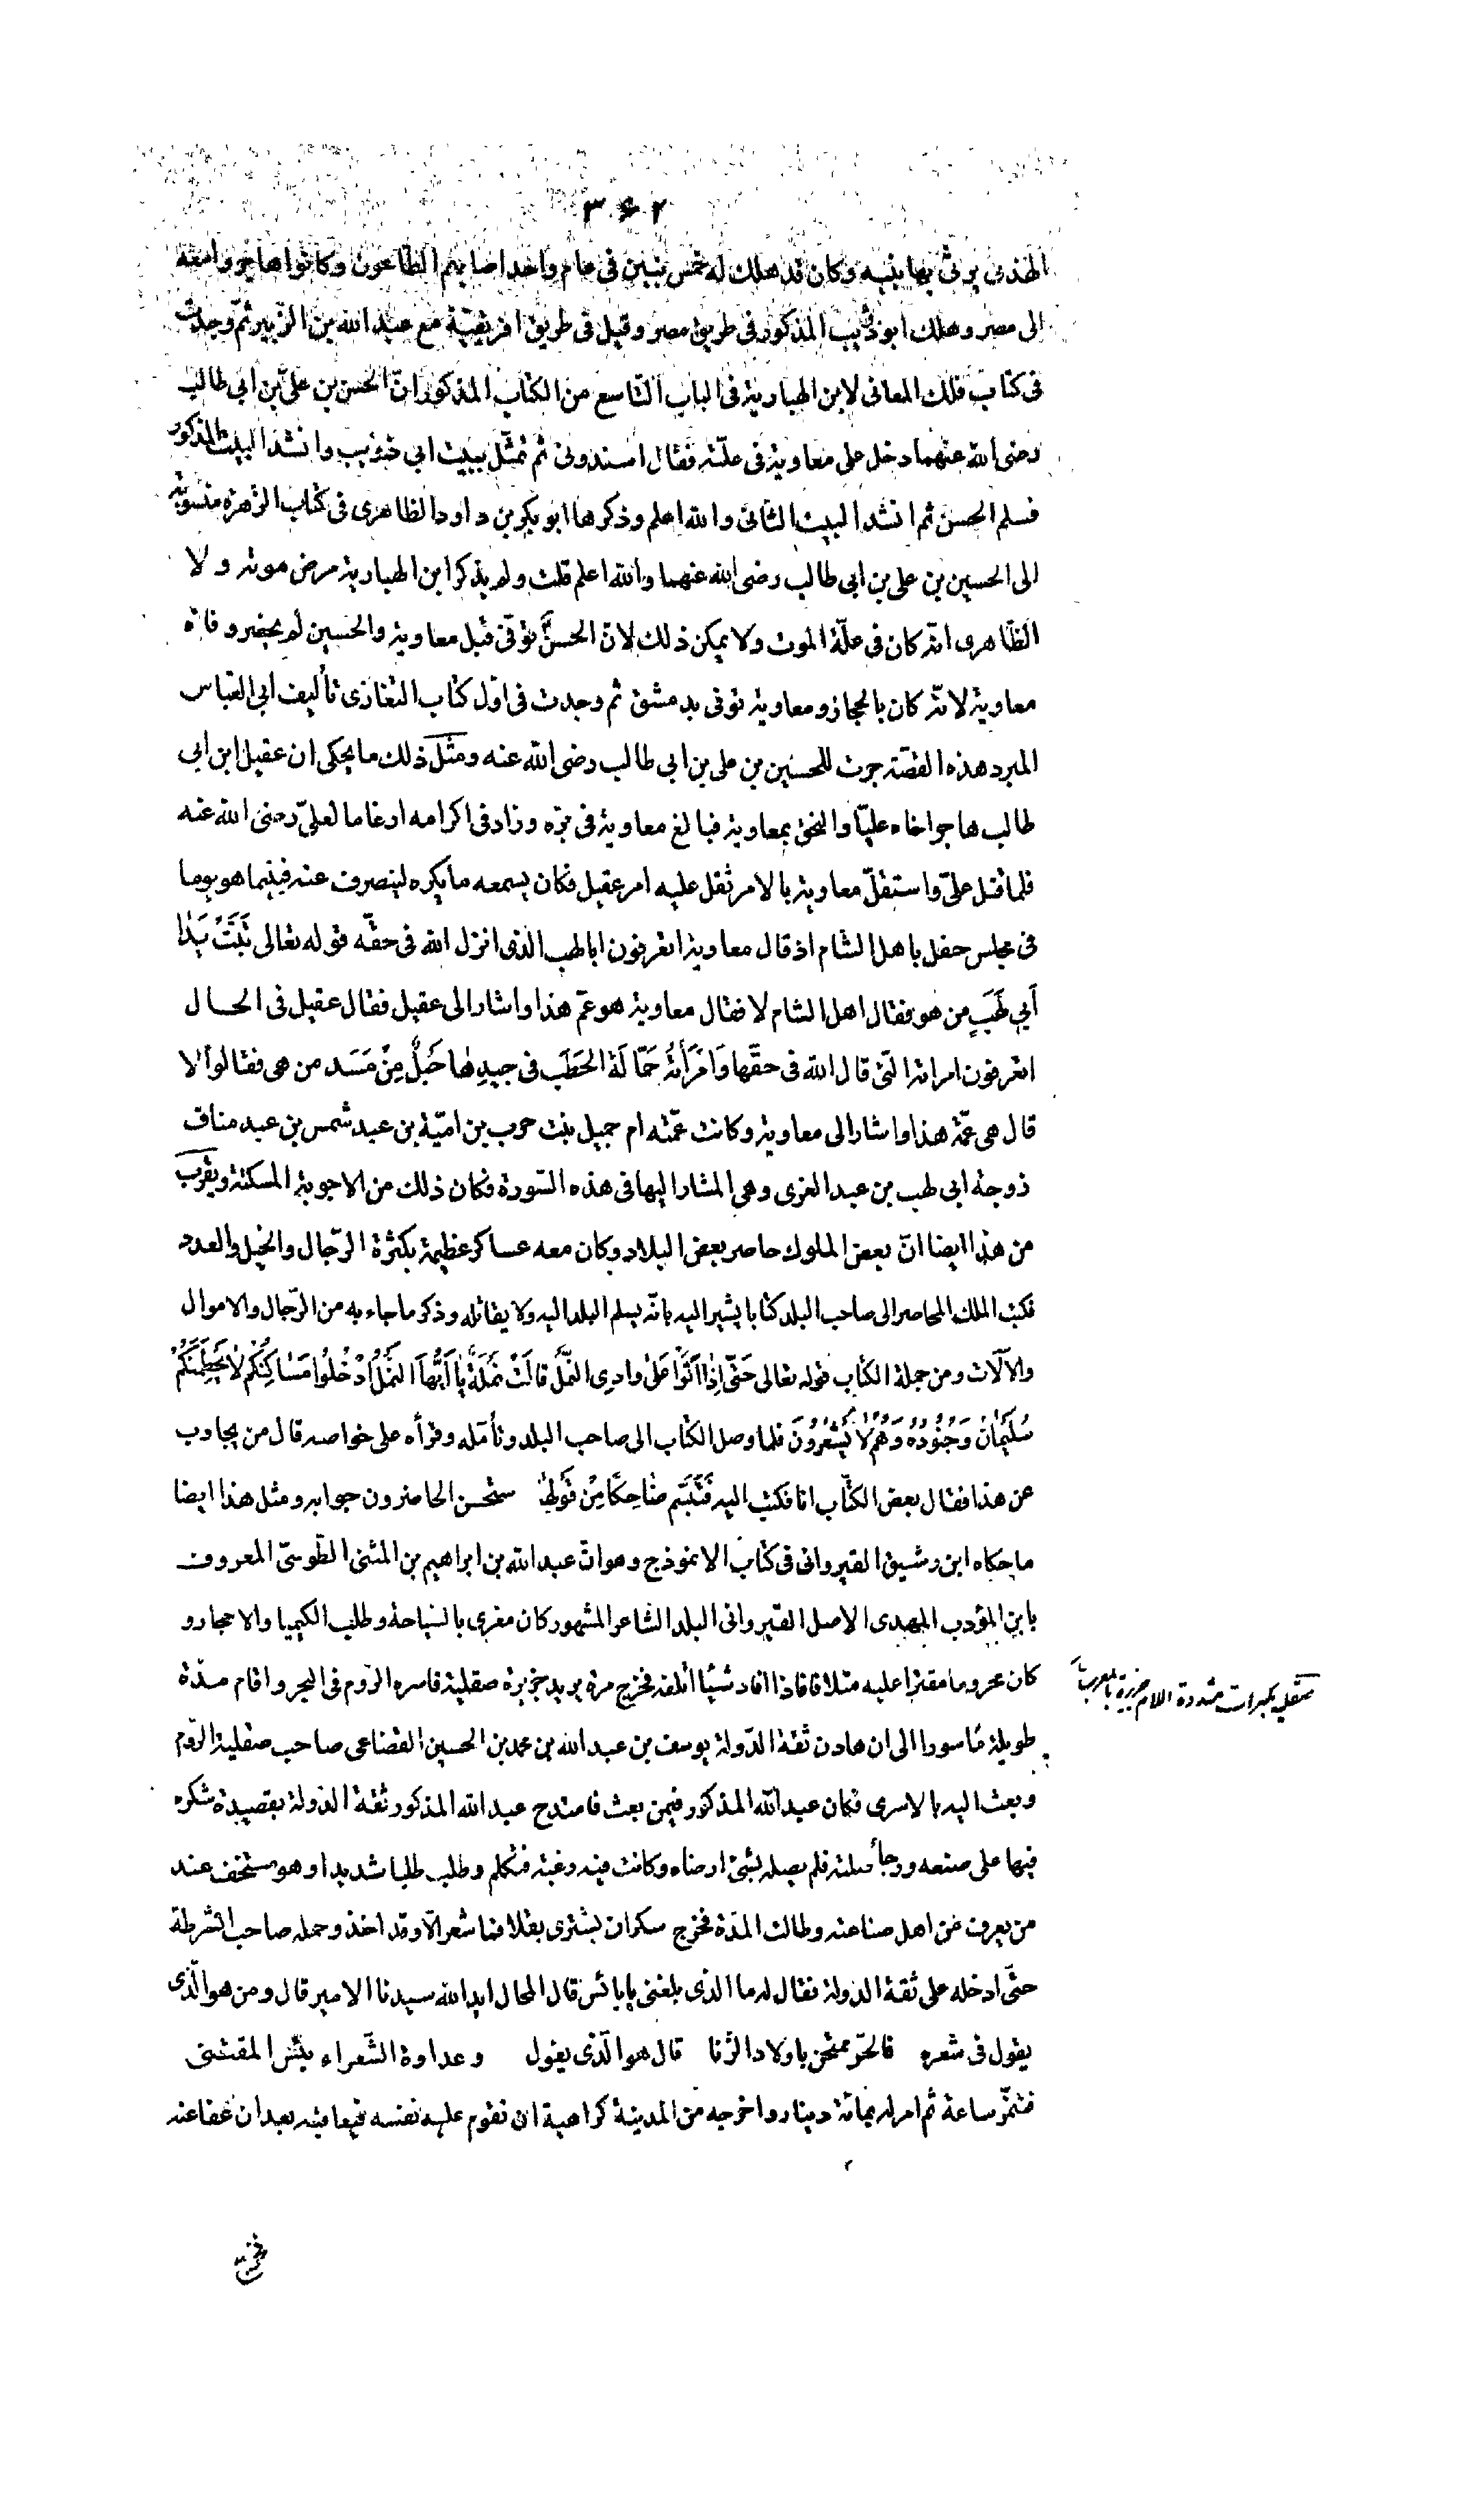 ٣٦٢
الهذلى يرثى بها بنيه وكان قد هلك له خمس بنين فى عام واحد اصابهم الطاعون وكانوا هاجروا معه
الى مصر وهلك ابو ذؤيب المذكور فى طريق مصر وقيل فى طريق افريقيّة مع عبد الله بن الزّبير ثمّ وجدت
فى كتاب فلك المعانى لابن الهبارية فى الباب التّاسع من الكتاب المذكور انّ الحسن بن علىّ بن ابى طالب
رضى الله عنهما دخل على معاوية فى علّته فقال اسندونى ثم تمثّل ببيت ابى ذؤيب وانشد البيت المذكور
فسلم الحسن ثم انشد البيت الثانى والله اعلم وذكرها ابو بكر بن داود الظاهرى فى كتاب الزهرة منسوبة
الى الحسين بن على بن ابى طالب رضى الله عنهما والله اعلم قلت ولم يذكر ابن الهبارية مرض موته ولا
الظّاهرى انّه كان فى علّة الموت ولا يمكن ذلك لانّ الحسن توفّى قبل معاوية والحسين لم يحضر وفاة
معاوية لانّه كان بالحجاز ومعاوية توفى بدمشق ثم وجدت فى اوّل كتاب التعازى تأليف ابى العبّاس
المبرد هذه القصّة جرت للحسين بن على بن ابى طالب رضى الله عنه ومثل ذلك ما يحكى ان عقيل ابن ابى
طالب هاجر اخاه عليّا والتحق بمعاوية فبالغ معاوية فى برّه وزاد فى اكرامه ارغاما لعلىّ رضى الله عنه
فلما قتل علىّ واستقلّ معاوية بالامر ثقل عليه امر عقيل فكان يسمعه ما يكره لينصرف عنه فبينما هو يوما
فى مجلس حفل باهل الشام اذ قال معاوية اتعرفون ابا لهب الذى انزل الله فى حقّه قوله تعالى تَبَّتْ يَدٰا
اَبِي لَهَبٍ من هو فقال اهل الشام لا فقال معاوية هو عمّ هذا واشار الى عقيل فقال عقيل فى الحال
اتعرفون امراته الّتى قال الله فى حقّها وَامْرَأَتُهُ حَمّالَةَ الحَطَبِ فى جِيدِهٰا حَبْلٌ مِنْ مَسَد من هى فقالوا لا
قال هى عمّة هذا واشار الى معاوية وكانت عمّته ام جميل بنت حرب بن اميّة بن عبد شمس بن عبد مناف
زوجة ابى لهب بن عبد العزى وهى المشار اليها فى هذه السّورة فكان ذلك من الاجوبة المسكتة ويقرب
من هذا ايضا انّ بعض الملوك حاصر بعض البلاد وكان معه عساكر عظيمة بكثرة الرّجال والخيل والعدد
فكتب الملك المحاصر الى صاحب البلد كتابا يشير اليه بانّه يسلم البلد اليه ولا يقاتله وذكر ما جاء به من الرّجال والاموال
والآلات ومن جملة الكتاب قوله تعالى حَتّى اِذٰا اَتَوْا عَلىٰ وادِى النَّمْلِ قالَتْ نَمْلَةٌ يٰا اَيُّهَا النَّمْلُ ادْخُلُوا مَسٰاكِنَكُمْ لٰا يَحْطِمَنَّكُمْ
سُلَيْمٰانُ وَجُنُودُهُ وَهُمْ لٰا يَشْعُرُونَ فلما وصل الكتاب الى صاحب البلد وتأمله وقرأه على خواصه قال من يجاوب
عن هذا فقال بعض الكتّاب انا فكتب اليه فَتَبَسَّمَ ضٰاحِكًا مِنْ قَوْلِهٰا ستحسن الحاضرون جوابه ومثل هذا ايضا
ما حكاه ابن رشيق القيروانى فى كتاب الانموذج وهو انّ عبد الله بن ابراهيم بن المثنى الطّوسىّ المعروف
بابن المؤدب المهدى الاصل القيروانى البلد الشاعر المشهور كان مغرى بالسّياحة وطلب الكيميا والاحجار و
كان محروما مقترا عليه متلافا فاذا افاد شيئا اتلفه فخرج مرة يريد جزيرة صقلية فاسره الرّوم فى البحر واقام مدّة
صقلية بكسرات مشددة اللام جزيرة بالمغرب
طويلة مأسورا الى ان هادن ثقة الدّولة يوسف بن عبد الله بن محمد بن الحسين القضاعى صاحب صقلية الرّوم
وبعث اليه بالاسرى فكان عبد الله المذكور فيمن بعث فامتدح عبد الله المذكور ثقة الدّولة بقصيدة شكره
فيها على صنعه ورجأ صلته فلم يصله بشىء ارضاه وكانت فيه رغبة فتكلم وطلب طلبا شديدا وهو مستخف عند
من يعرف من اهل صناعته وطالت المدّة فخرج سكران يشترى بقلا فما شعر الّا وقد اخذ وحمله صاحب الشرطة
حتّى ادخله على ثقة الدولة فقال له ما الذى بلغنى يا بائس قال المحال ايد الله سيدنا الامير قال ومن هو الّذى
يقول فى شعره فالحرّ ممتحن باولاد الزّنا قال هو الّذى يقول وعداوة الشّعراء بئس المقتنى
فتنمّر ساعة ثم امر له بمائة دينار واخرجه من المدينة كراهية ان تقوم عليه نفسه فيعاقبه بعد ان عفا عنه
فخرج